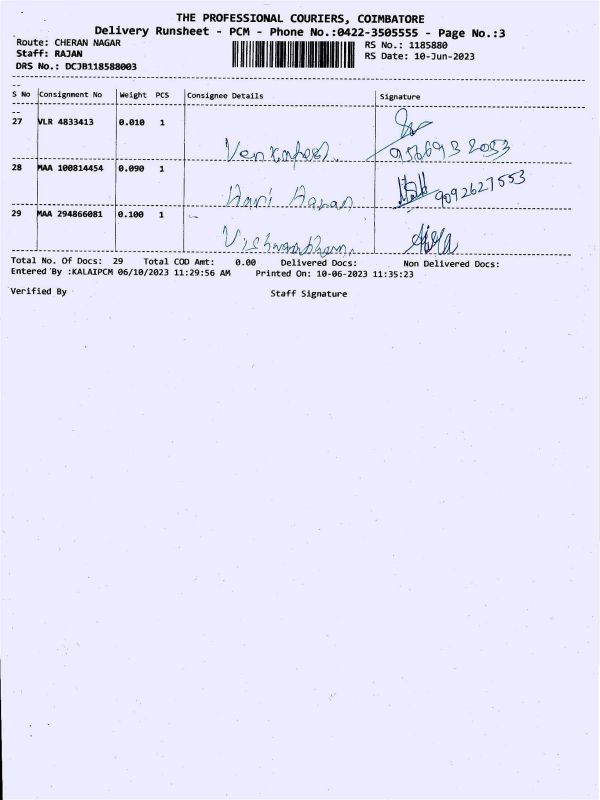 THE PROFESSIONAL COURIERS, COIMBATORE
Delivery Runsheet - PCM - Phone No.:0422-3505555 - Page No.:3
Route: CHERAN NAGAR
RS No.: 1185880
Staff: RAJAN
RS Date: 10-Jun-2023
DRS No.: DCJB118588003
S No Consignment No Weight PCS Consignee Details Signature
27 VLR 4833413 0.010 1
28 MAA 100814454 0.090 1
9092627553
29 MAA 294866081 0.100 1
Total No. Of Docs: 29 Total COD Amt: 0.00 Delivered Docs: Non Delivered Docs:
Entered By :KALAIPCM 06/10/2023 11:29:56 AM Printed On: 10-06-2023 11:35:23
Verified By Staff Signature